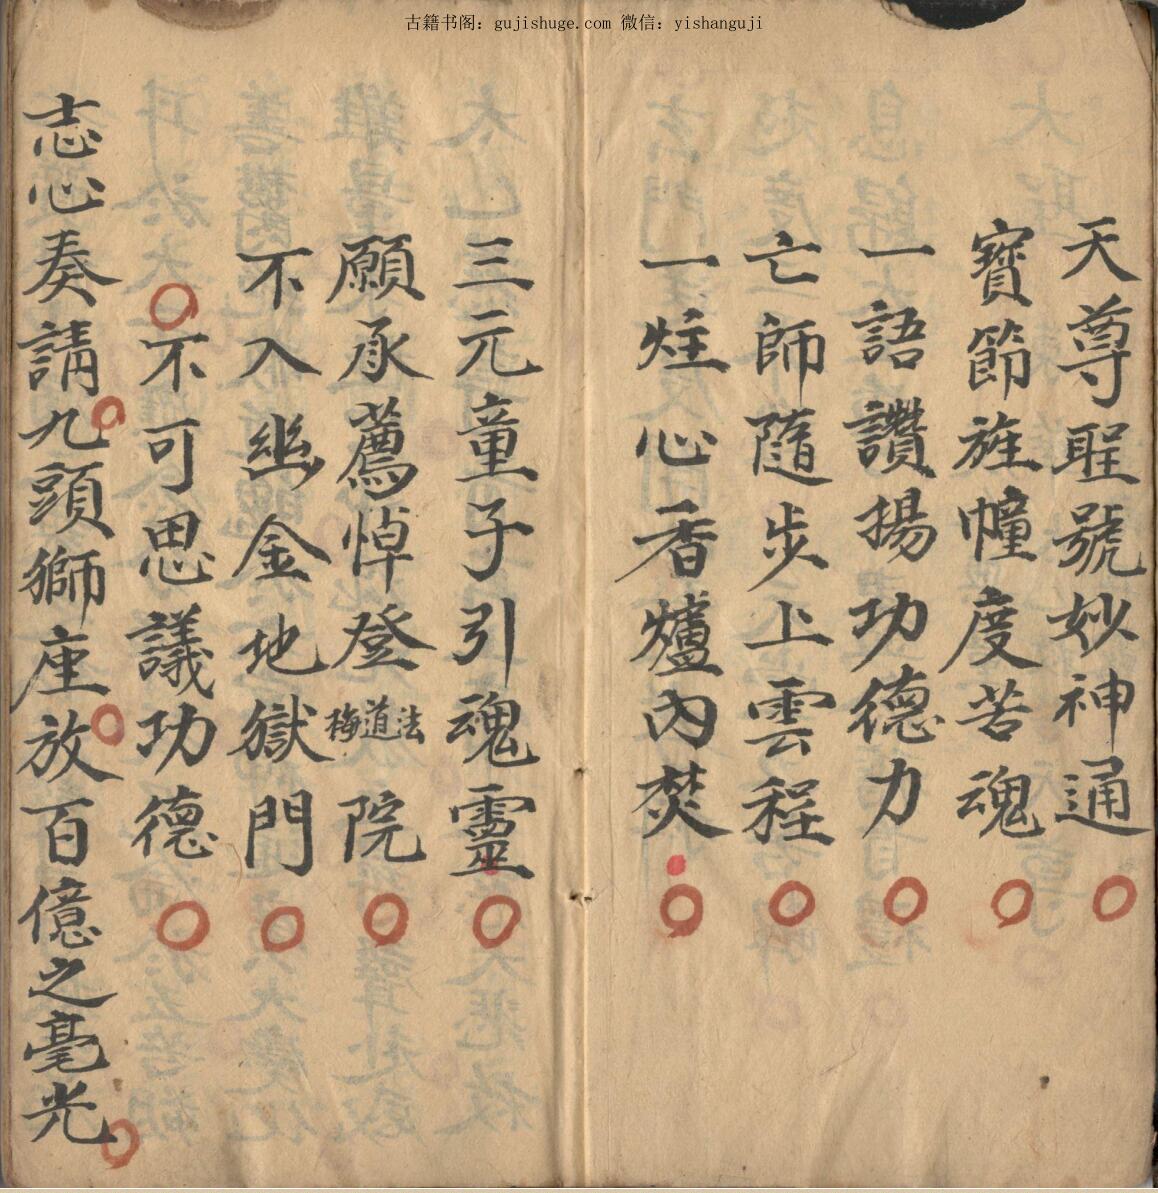 古籍书阁：gujishuge.com 微信：yishanguji
天尊聖號妙神通
寶節旌幢度苦魂
一語讚揚功德力
亡師隨步上雲程
一炷心香爐內焚
三元童子引魂靈
願承薦悼登梅道法院
不入幽金地獄門
不可思議功德
志心奏請九頭獅座放百億之毫光